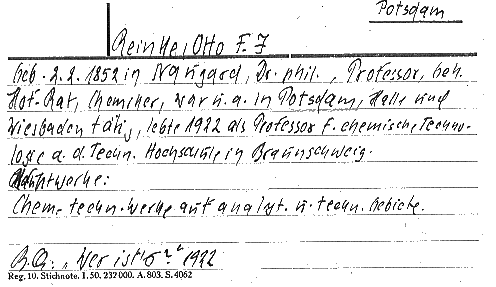 Potsdam
Reinke, Otto F. J
geb. 2.2. 1852 in Naugard, Dr. phil., Professor, Geh.
Hof-Rat, Chemiker, war u. a. in Potsdam, Halle und
Wiesbaden tätig, lebte 1922 als Professor f. chemische Techno-
logie a. d. Techn. Hochschule in Braunschweig.
Hauptwerke:
Chem. techn. Werke auf analyt. u. techn. Gebiete.
B.Q.: „Wer ist's?" 1922
Reg. 10. Stichnote. I. 50. 232 000. A. 803. S. 4062